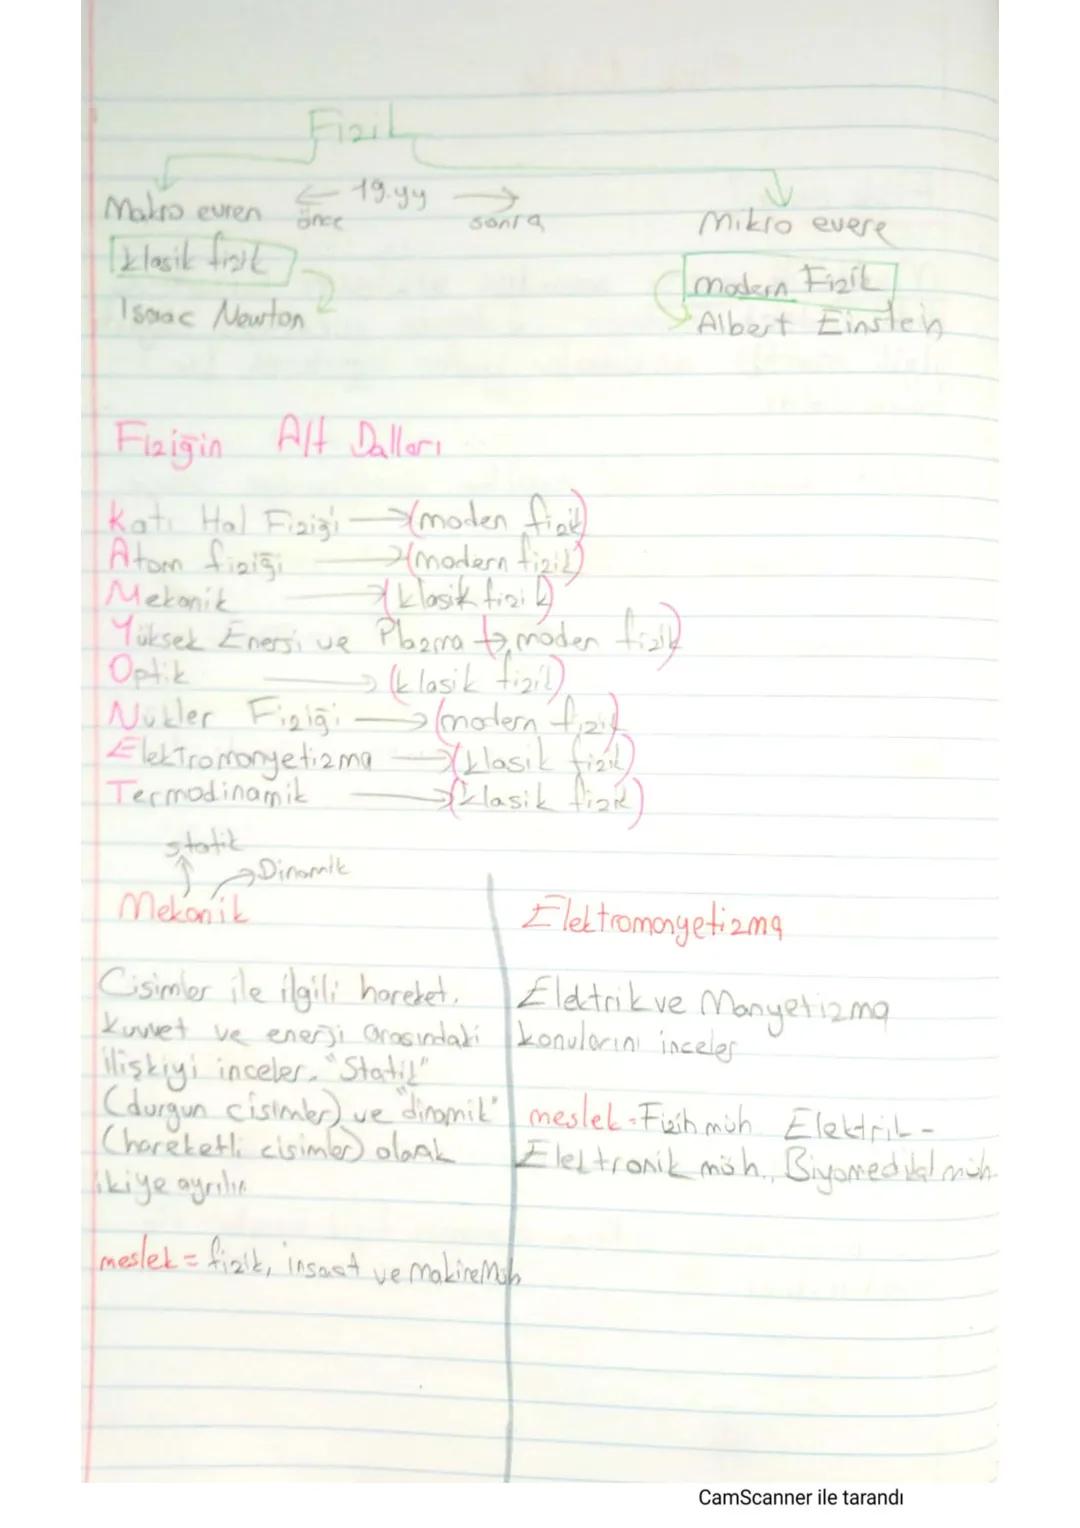 Fizik
Makro evren ← 19.yy → Mikro evere
önce sonra
klasik fizik Modern Fizik
Isaac Newton Albert Einstein
Fiziğin Alt Dalları
Katı Hal Fiziği → (moden fizik)
Atom fiziği → (modern fizik)
Mekanik → (klasik fizik)
Yüksek Enerji ve Plazma → moden fizik)
Optik → (klasik fizik)
Nükler Fiziği → (modern fizik)
Elektromanyetizma → (klasik fizik)
Termodinamik → (klasik fizik)
statik
Dinamik
Mekanik
Cisimler ile ilgili hareket,
kuvvet ve enerji arasındaki
ilişkiyi inceler. "Statik"
(durgun cisimler) ve "dinamik"
(hareketli cisimler) olarak
ikiye ayrılır
meslek = fizik, insaat ve makine Müh
Elektromanyetizma
Elektrik ve Manyetizma
konularını inceler
meslek = Fizik müh Elektrik -
Elektronik müh., Biyomedikal müh
CamScanner ile tarandı